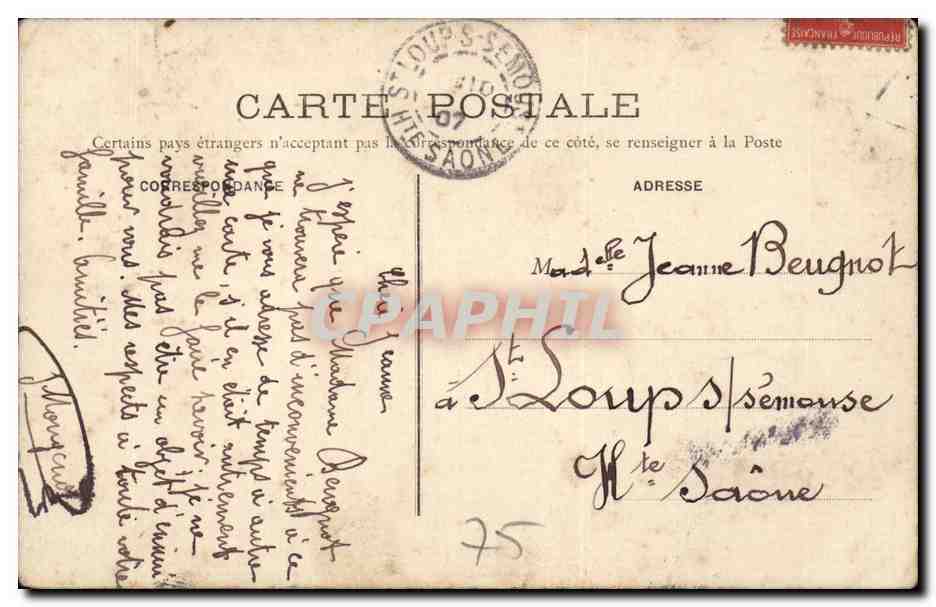 RÉPUBLIQUE FRANÇAISE
ST LOUP-S-SEMOUSE
10
07
HTE SAÔNE
CARTE POSTALE
Certains pays étrangers n'acceptant pas la correspondance de ce côté, se renseigner à la Poste
CORRESPONDANCE
Chère Jeanne
J'espère que Madame Beugnot
ne trouvera pas d'inconvénients à ce
que je vous adresse de temps à autre
une carte, s'il en était autrement
veuillez me le faire savoir, je ne
voudrais pas être un objet d'ennui
pour vous. Mes respects à toute votre
famille. Amitiés.
ADRESSE
Madelle Jeanne Beugnot
à St. Loup s/sémouse
Hte Saône
75
CPAPHIL